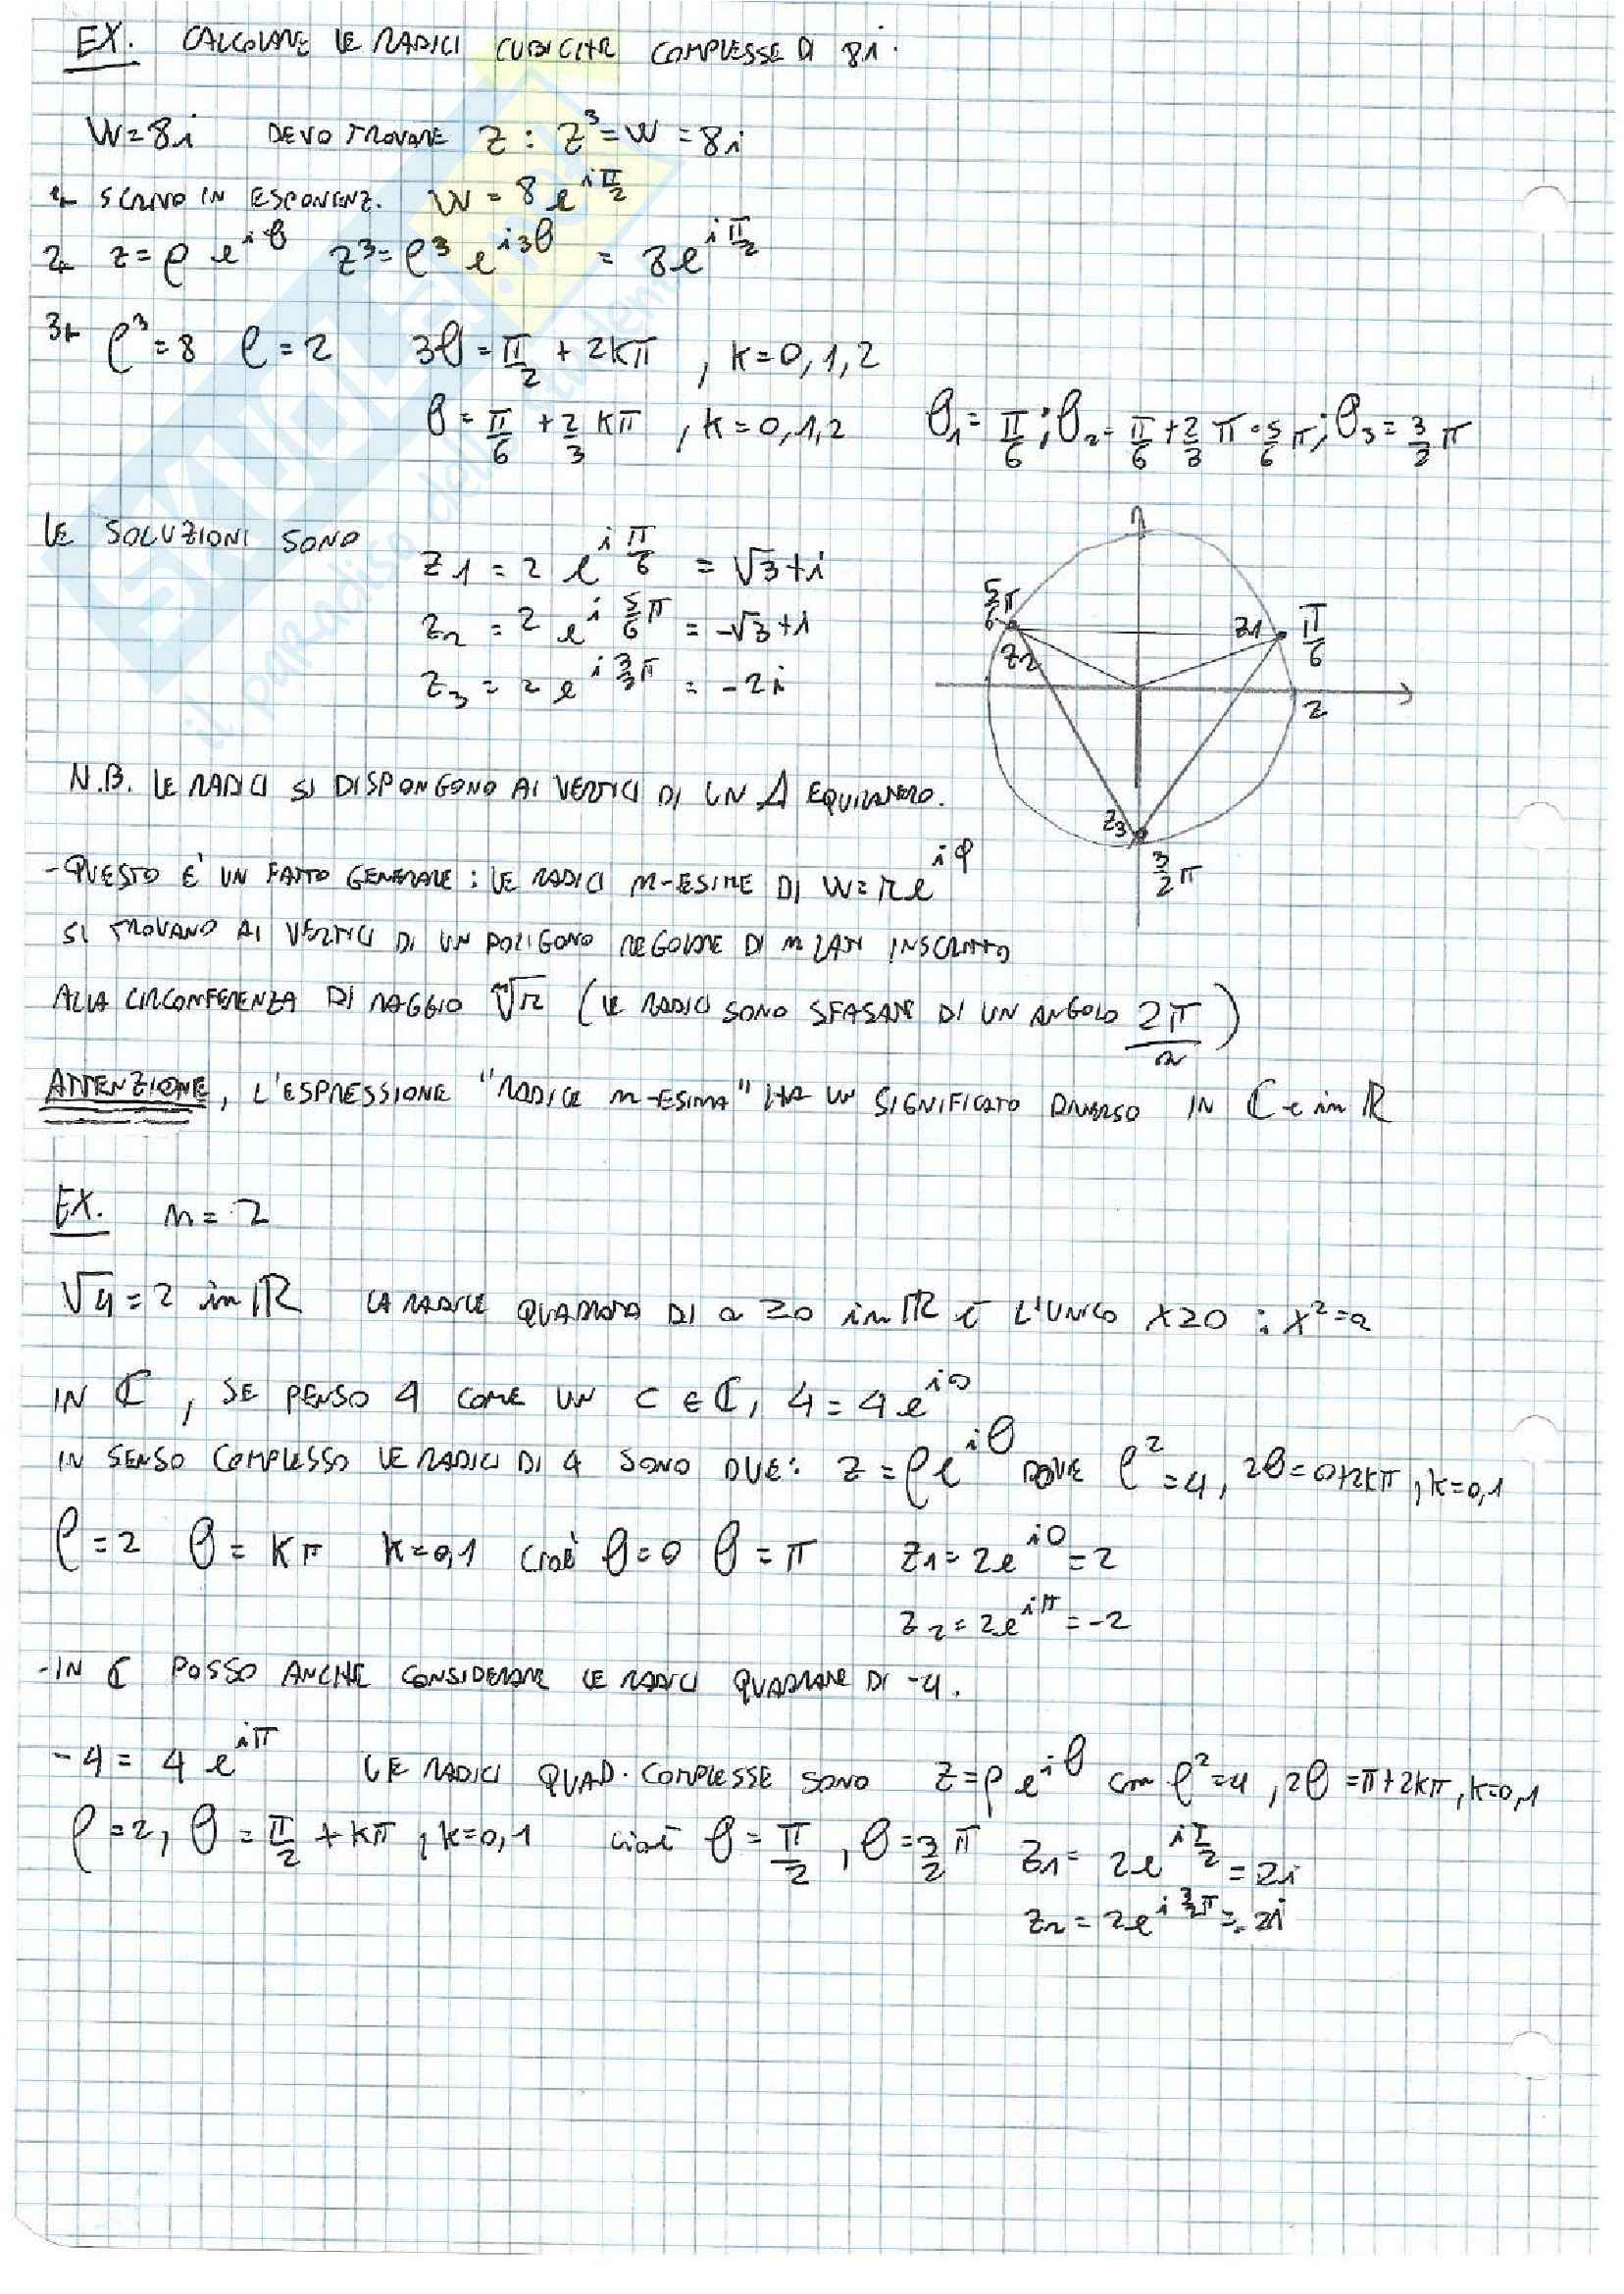 EX. CALCOLARE LE RADICI CUBICHE COMPLESSE DI 8i.
W=8i DEVO TROVARE z : z³=W=8i
1. SCRIVO IN ESPONENZ. W = 8e^{iπ/2}
2. z=ρe^{iθ} z³=ρ³e^{i3θ} = 8e^{iπ/2}
3. ρ³=8 ρ=2 3θ=π/2+2kπ, k=0,1,2
θ=π/6+2/3kπ, k=0,1,2 θ₁=π/6; θ₂=π/6+2/3π=5/6π; θ₃=3/2π
LE SOLUZIONI SONO
z1=2e^{iπ/6}=√3+i
z₂=2e^{i5/6π}=-√3+i
z₃=2e^{i3/2π}=-2i
5/6π
z₂
z1
π/6
2
z₃
3/2π
N.B. LE RADICI SI DISPONGONO AI VERTICI DI UN Δ EQUILATERO.
-QUESTO E' UN FATTO GENERALE: LE RADICI n-ESIME DI W=re^{iφ}
SI TROVANO AI VERTICI DI UN POLIGONO REGOLARE DI n LATI INSCRITTO
ALLA CIRCONFERENZA DI RAGGIO ⁿ√r (LE RADICI SONO SFASATE DI UN ANGOLO 2π/n)
ATTENZIONE, L'ESPRESSIONE "RADICE n-ESIMA" HA UN SIGNIFICATO DIVERSO IN ℂ e in ℝ
EX. n=2
√4=2 in ℝ LA RADICE QUADRATA DI a≥0 in ℝ È L'UNICO x≥0 : x²=a
IN ℂ, SE PENSO 4 COME UN C∈ℂ, 4=4e^{i0}
IN SENSO COMPLESSO LE RADICI DI 4 SONO DUE: z=ρe^{iθ} DOVE ρ²=4, 2θ=0+2kπ, k=0,1
ρ=2 θ=kπ k=0,1 cioè θ=0 θ=π z₁=2e^{i0}=2
z₂=2e^{iπ}=-2
-IN ℂ POSSO ANCHE CONSIDERARE LE RADICI QUADRATE DI -4.
-4=4e^{iπ} LE RADICI QUAD. COMPLESSE SONO z=ρe^{iθ} con ρ²=4, 2θ=π+2kπ, k=0,1
ρ=2, θ=π/2+kπ, k=0,1 cioè θ=π/2, θ=3/2π z₁=2e^{iπ/2}=2i
z₂=2e^{i3/2π}=-2i